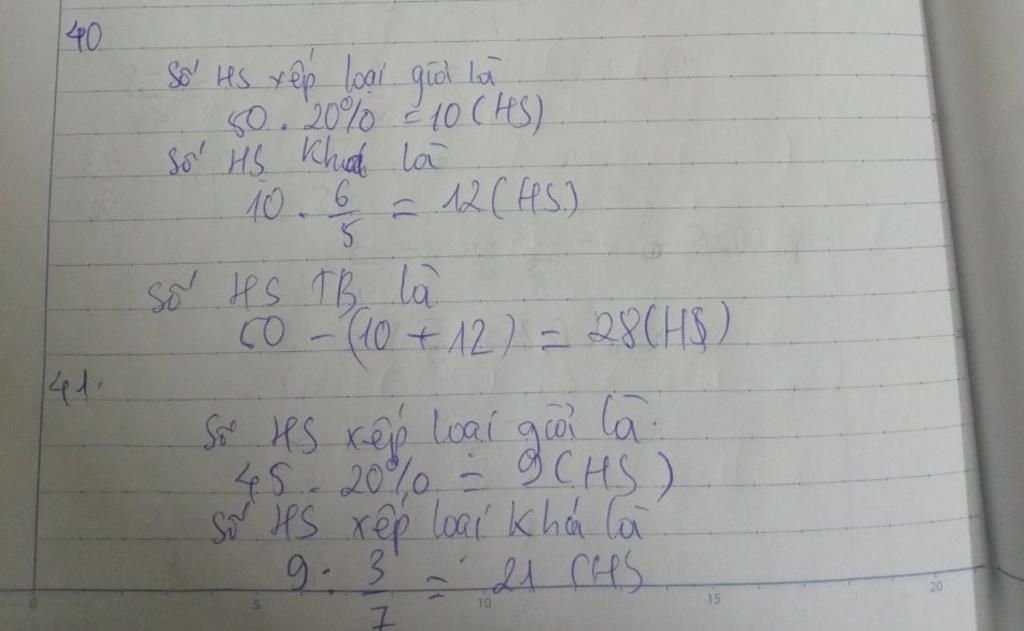 40
Số HS xếp loại giỏi là
50 . 20% = 10 (HS)
Số HS Khá là
10 . 6/5 = 12 (HS)
Số HS TB là
50 - (10 + 12) = 28 (HS)
41.
Số HS xếp loại giỏi là.
45 . 20% = 9 (HS)
Số HS xếp loại Khá là
9 . 3/7 = 21 (HS
0 5 10 15 20